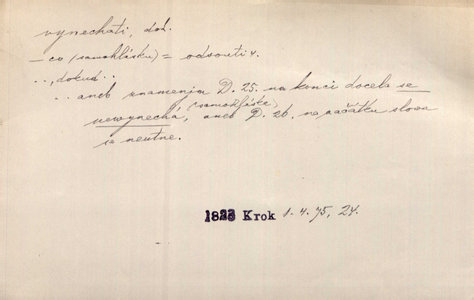 vynechati, dok.
— co (samohlásku) = odsouti v.
. . , dokud . .
. . aneb znamením D. 25. na konci docela se
newynechá, (samohláska) aneb D. 26. na začátku slowa
se neutne.
1823 Krok 1. 4. 75, 24.